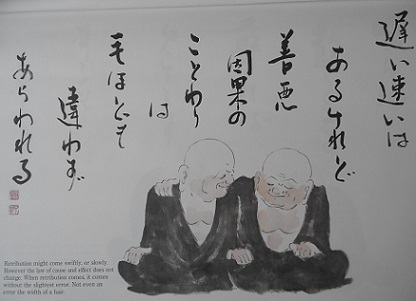 遅い速いは
あるけれど
善悪
因果の
ことわり
は
毛ほども
違わず
あらわれる
Retribution might come swiftly, or slowly.
However the law of cause and effect does not
change. When retribution comes, it comes
without the slightest error. Not even an
error the width of a hair.